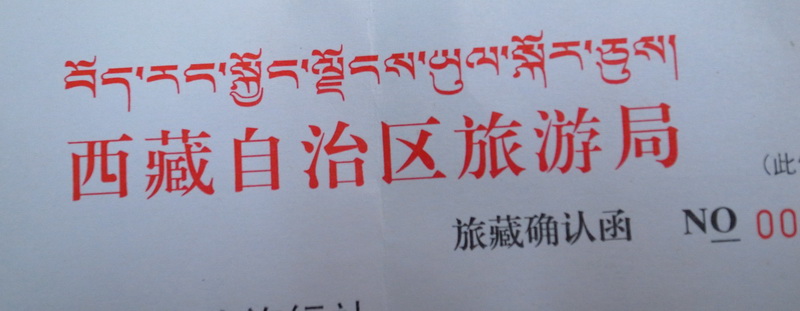 བོད་རང་སྐྱོང་ལྗོངས་ཡུལ་སྐོར་ཅུས།
西藏自治区旅游局
（此
旅藏确认函 NO 00